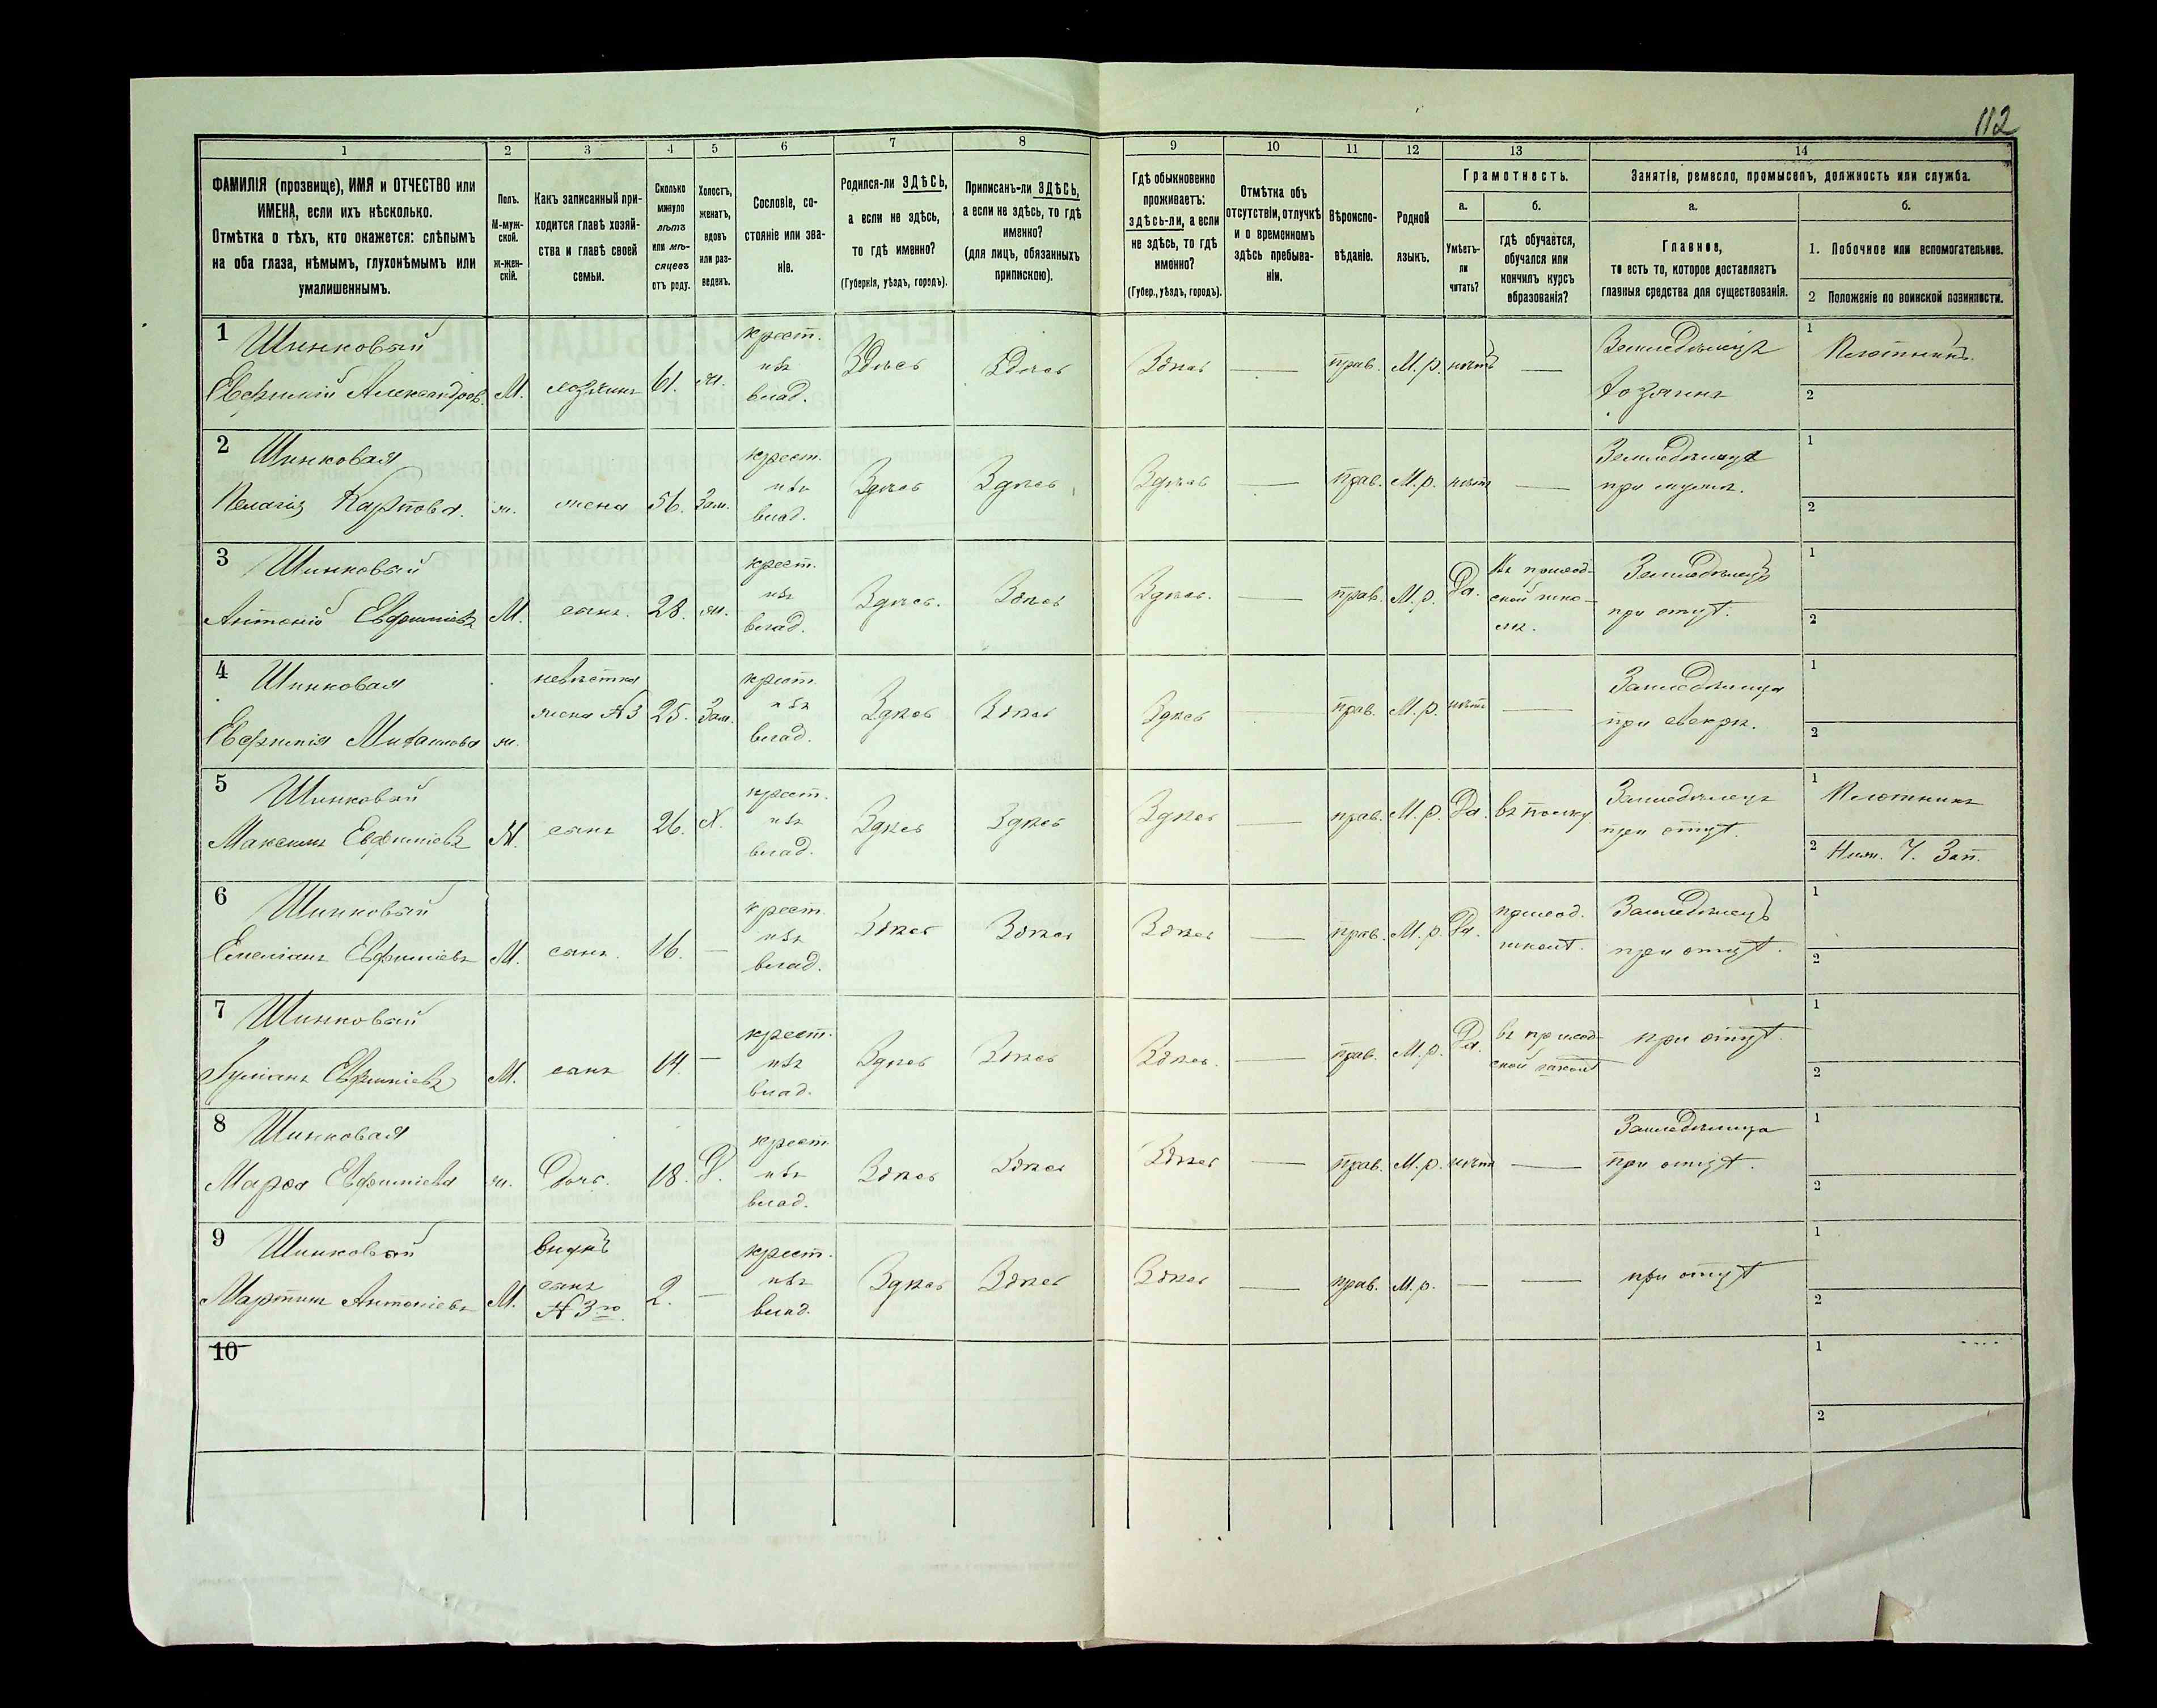 112
1 2 3 4 5 6 7 8 9 10 11 12 13 14
ФАМИЛІЯ (прозвище), ИМЯ и ОТЧЕСТВО или
ИМЕНА, если ихъ нѣсколько.
Отмѣтка о тѣхъ, кто окажется: слѣпымъ
на оба глаза, нѣмымъ, глухонѣмымъ или
умалишеннымъ.
Полъ.
М-муж-
ской.
Ж-жен-
скій.
Какъ записанный при-
ходится главѣ хозяй-
ства и главѣ своей
семьи.
Сколько
минуло
лѣтъ
или мѣ-
сяцевъ
отъ роду.
Холостъ,
женатъ,
вдовъ
или раз-
веденъ.
Сословіе, со-
стояніе или зва-
ніе.
Родился-ли ЗДѢСЬ,
а если не здѣсь,
то гдѣ именно?
(Губернія, уѣздъ, городъ).
Приписанъ-ли ЗДѢСЬ,
а если не здѣсь, то гдѣ
именно?
(для лицъ, обязанныхъ
припискою).
Гдѣ обыкновенно
проживаетъ:
здѣсь-ли, а если
не здѣсь, то гдѣ
именно?
(Губер., уѣздъ, городъ).
Отмѣтка объ
отсутствіи, отлучкѣ
и о временномъ
здѣсь пребыва-
ніи.
Вѣроиспо-
вѣданіе.
Родной
языкъ.
Грамотность.
а.
Умѣетъ-
ли
читать?
б.
гдѣ обучается,
обучался или
кончилъ курсъ
образованія?
Занятіе, ремесло, промыселъ, должность или служба.
а.
Главное,
то есть то, которое доставляетъ
главныя средства для существованія.
б.
1. Побочное или вспомогательное.
2 Положеніе по воинской повинности.
1 Шинковый
Евфимій Александров.
М.
хозяинъ
61.
ж.
крест.
изъ
влад.
Здѣсь
Здѣсь
Здѣсь
—
прав.
М.р.
нѣтъ
—
Земледѣлецъ
хозяинъ
1 Плотникъ.
2
2 Шинковая
Пелагія Карпова.
ж.
жена
56.
Зам.
крест.
изъ
влад.
Здѣсь
Здѣсь
Здѣсь
—
прав.
М.р.
нѣтъ
—
Земледѣлица
при мужѣ.
1
2
3 Шинковый
Антоній Евфиміевъ
М.
сынъ.
28.
ж.
крест.
изъ
влад.
Здѣсь.
Здѣсь
Здѣсь.
—
прав.
М.р.
Да.
Въ приход-
ской шко-
лѣ.
Земледѣлецъ
при отцѣ.
1
2
4 Шинковая
Евфимія
ж.
невѣстка
жена №3
25.
Зам.
крест.
изъ
влад.
Здѣсь
Здѣсь
Здѣсь
—
прав.
М.р.
нѣтъ
—
Земледѣлица
при свекрѣ.
1
2
5 Шинковый
Максимъ Евфиміевъ
М.
сынъ
26.
Х.
крест.
изъ
влад.
Здѣсь
Здѣсь
Здѣсь
—
прав.
М.р.
Да.
въ полку
Земледѣлецъ
при отцѣ.
1 Плотникъ
2 Ниж. Ч. Зап.
6 Шинковый
Емеліанъ Евфиміевъ
М.
сынъ.
16.
—
крест.
изъ
влад.
Здѣсь
Здѣсь
Здѣсь
—
прав.
М.р.
Да.
приход.
школѣ.
Земледѣлецъ
при отцѣ.
1
2
7 Шинковый
Іуліанъ Евфиміевъ
М.
сынъ
14.
—
крест.
изъ
влад.
Здѣсь
Здѣсь
Здѣсь.
—
прав.
М.р.
Да.
въ приход-
ской школѣ
при отцѣ.
1
2
8 Шинковая
Марѳа Евфиміева
ж.
Дочь.
18.
Д.
крест.
изъ
влад.
Здѣсь
Здѣсь
Здѣсь
—
прав.
М.р.
нѣтъ
—
Земледѣлица
при отцѣ.
1
2
9 Шинковый
Мартинъ Антоніевъ
М.
внукъ
сынъ
№ 3го
2.
—
крест.
изъ
влад.
Здѣсь
Здѣсь
Здѣсь
—
прав.
М.р.
—
—
при отцѣ
1
2
10
1
2